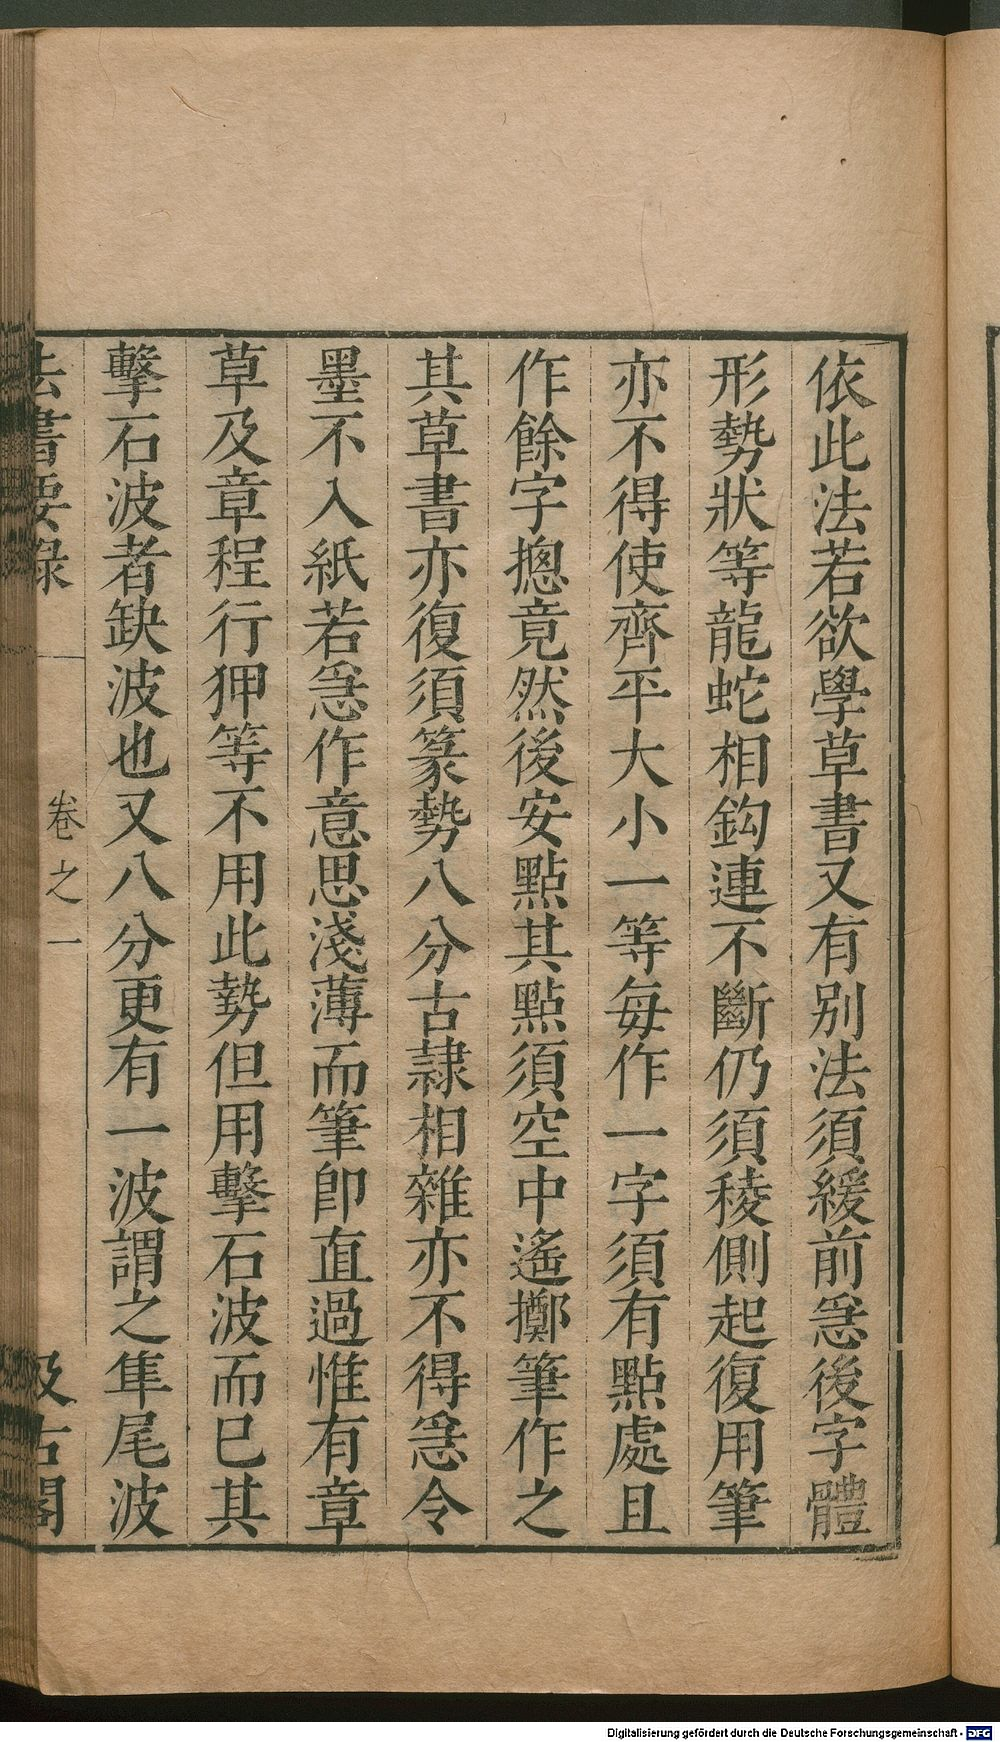 依此法若欲學草書又有别法須緩前急後字體
形勢狀等龍蛇相鈎連不斷仍須稜側起復用筆
亦不得使齊平大小一等每作一字須有點處且
作餘字摠竟然後安點其點須空中遙擲筆作之
其草書亦復須篆勢八分古隸相雜亦不得急令
墨不入紙若急作意思淺薄而筆卽直過惟有章
草及章程行狎等不用此勢但用擊石波而已其
擊石波者缺波也又八分更有一波謂之隼尾波
法書要錄 卷之一 汲古閣
Digitalisierung gefördert durch die Deutsche Forschungsgemeinschaft - DFG